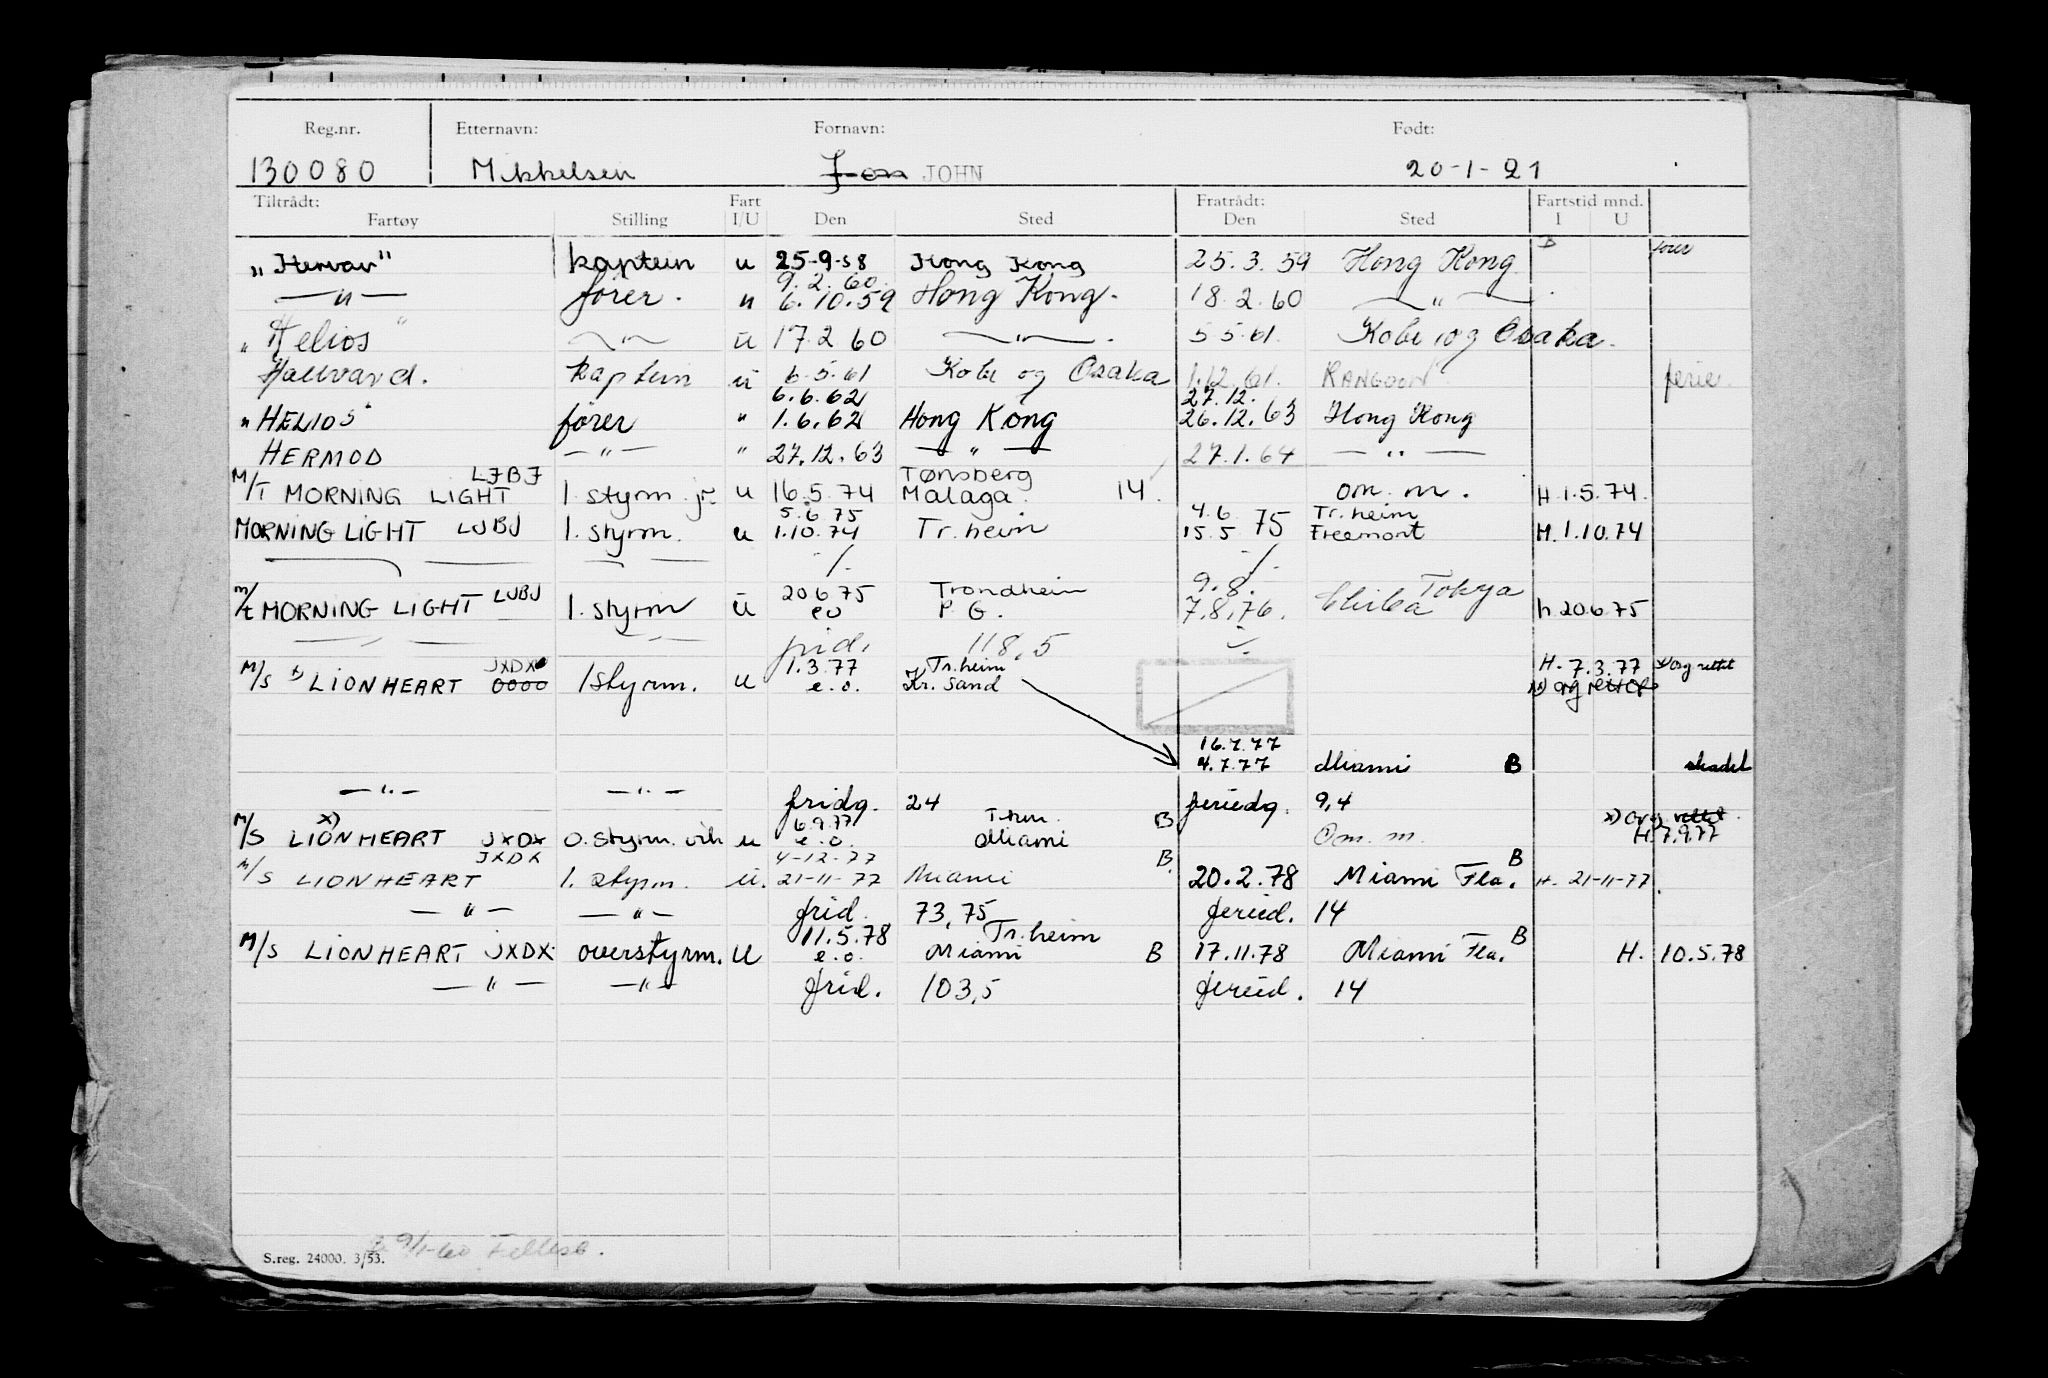 Reg.nr. Etternavn: Fornavn: Født:
130080 Mikkelsen Jon JOHN 20-1-21
Tiltrådt: Fart Fratrådt: Fartstid mnd.
Fartøy Stilling I/U Den Sted Den Sted I U
B fører
"Hervar" kaptein u 25-9-58 Hong Kong 25.3.59 Hong Kong
9.2.60
—"— fører. u 6.10.59 Hong Kong. 18.2.60 —"—.
"Helios" —"— u 17.2.60 —"—. 5.5.61. Kobe og Osaka.
Hallvard. kaptein u 6.5.61 Kobe og Osaka 1.12.61. RANGOON. ferie.
6.6.62 27.12.
"HELIOS" fører " 1.6.62 Hong Kong 26.12.63 Hong Kong
HERMOD —"— " 27.12.63 —"— 27.1.64 —"—
LJBJ Tønsberg
M/T MORNING LIGHT 1. styrm. jr. u 16.5.74 Malaga. 14. om. m. H.1.5.74.
5.6.75 4.6. Tr.heim
MORNING LIGHT LJBJ 1. styrm. u 1.10.74 Tr.heim 15.5 75 Freemont H.1.10.74
— — ./. ./.
20.6.75 Trondheim 9.8. Tokya
m/t MORNING LIGHT LJBJ 1. styrm u eo P.G. 7.8.76. Chiba h.20.6.75
— — frid. 118,5
JXDX 1.3.77 Tr.heim H. 7.3.77 x) org rettet
M/S x) LIONHEART 0000 1styrm. u e.o. Kr.sand x) org rettet
16.7.77
4.7.77 Miami B skadet
—"— —"— fridg. 24 feriedg. 9,4
x) 6.9.77 T.hm. B x) org rettet.
M/S LIONHEART JXDX o.styrm. vik u e.o. Miami Om. m. H.7.9.77
JXDX 4-12-77 B. B
M/S LIONHEART 1. styrm. u. 21-11-77 Miami 20.2.78 Miami Fla. H. 21-11-77.
—"— —"— frid. 73,75 feried. 14
11.5.78 Tr.heim B
M/S LIONHEART JXDX overstyrm. U e.o. Miami B 17.11.78 Miami Fla. H. 10.5.78
—"— —"— frid. 103,5 feried. 14
9/1-60
S.reg. 24000. 3/53.